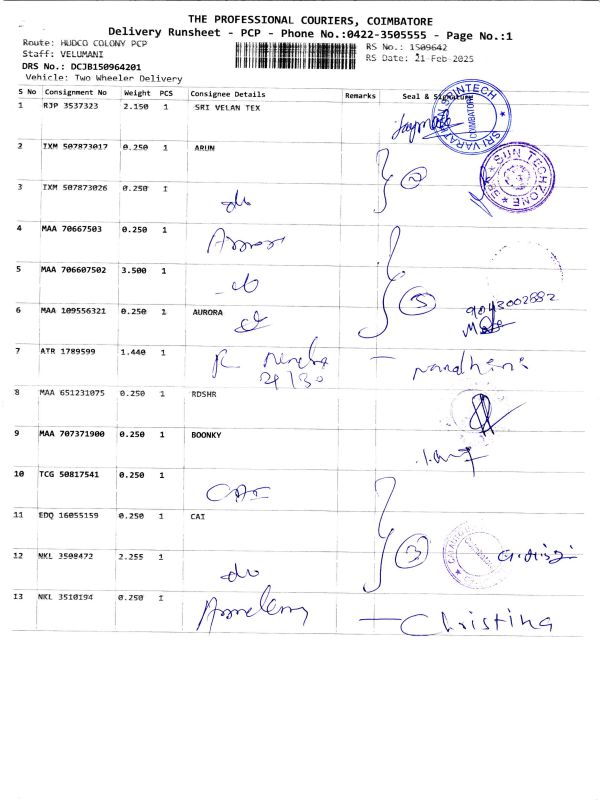 THE PROFESSIONAL COURIERS, COIMBATORE
Delivery Runsheet - PCP - Phone No.:0422-3505555 - Page No.:1
Route: HUDCO COLONY PCP
RS No.: 1509642
Staff: VELUMANI
RS Date: 21-Feb-2025
DRS No.: DCJB150964201
Vehicle: Two Wheeler Delivery
S No Consignment No Weight PCS Consignee Details Remarks Seal & Signature
1 RJP 3537323 2.150 1 SRI VELAN TEX
COIMBATORE
2 IXM 507873017 0.250 1 ARUN
2
SUN TECHZONE
3 IXM 507873026 0.250 1
do
4 MAA 70667503 0.250 1
5 MAA 706607502 3.500 1
3
9043002882
6 MAA 109556321 0.250 1 AURORA
7 ATR 1789599 1.440 1
nandhini
8 MAA 651231075 0.250 1 RDSHR
9 MAA 707371900 0.250 1 BOONKY
10 TCG 50817541 0.250 1
CAI
11 EDQ 16055159 0.250 1 CAI
3
12 NKL 3508472 2.255 1
do
13 NKL 3510194 0.250 1
Christina